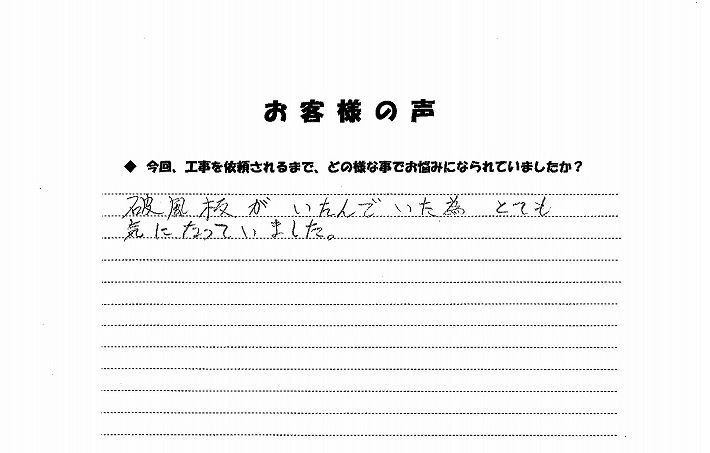 お客様の声
◆ 今回、工事を依頼されるまで、どの様な事でお悩みになられていましたか？
破風板が いたんでいた為 とても
気になっていました。